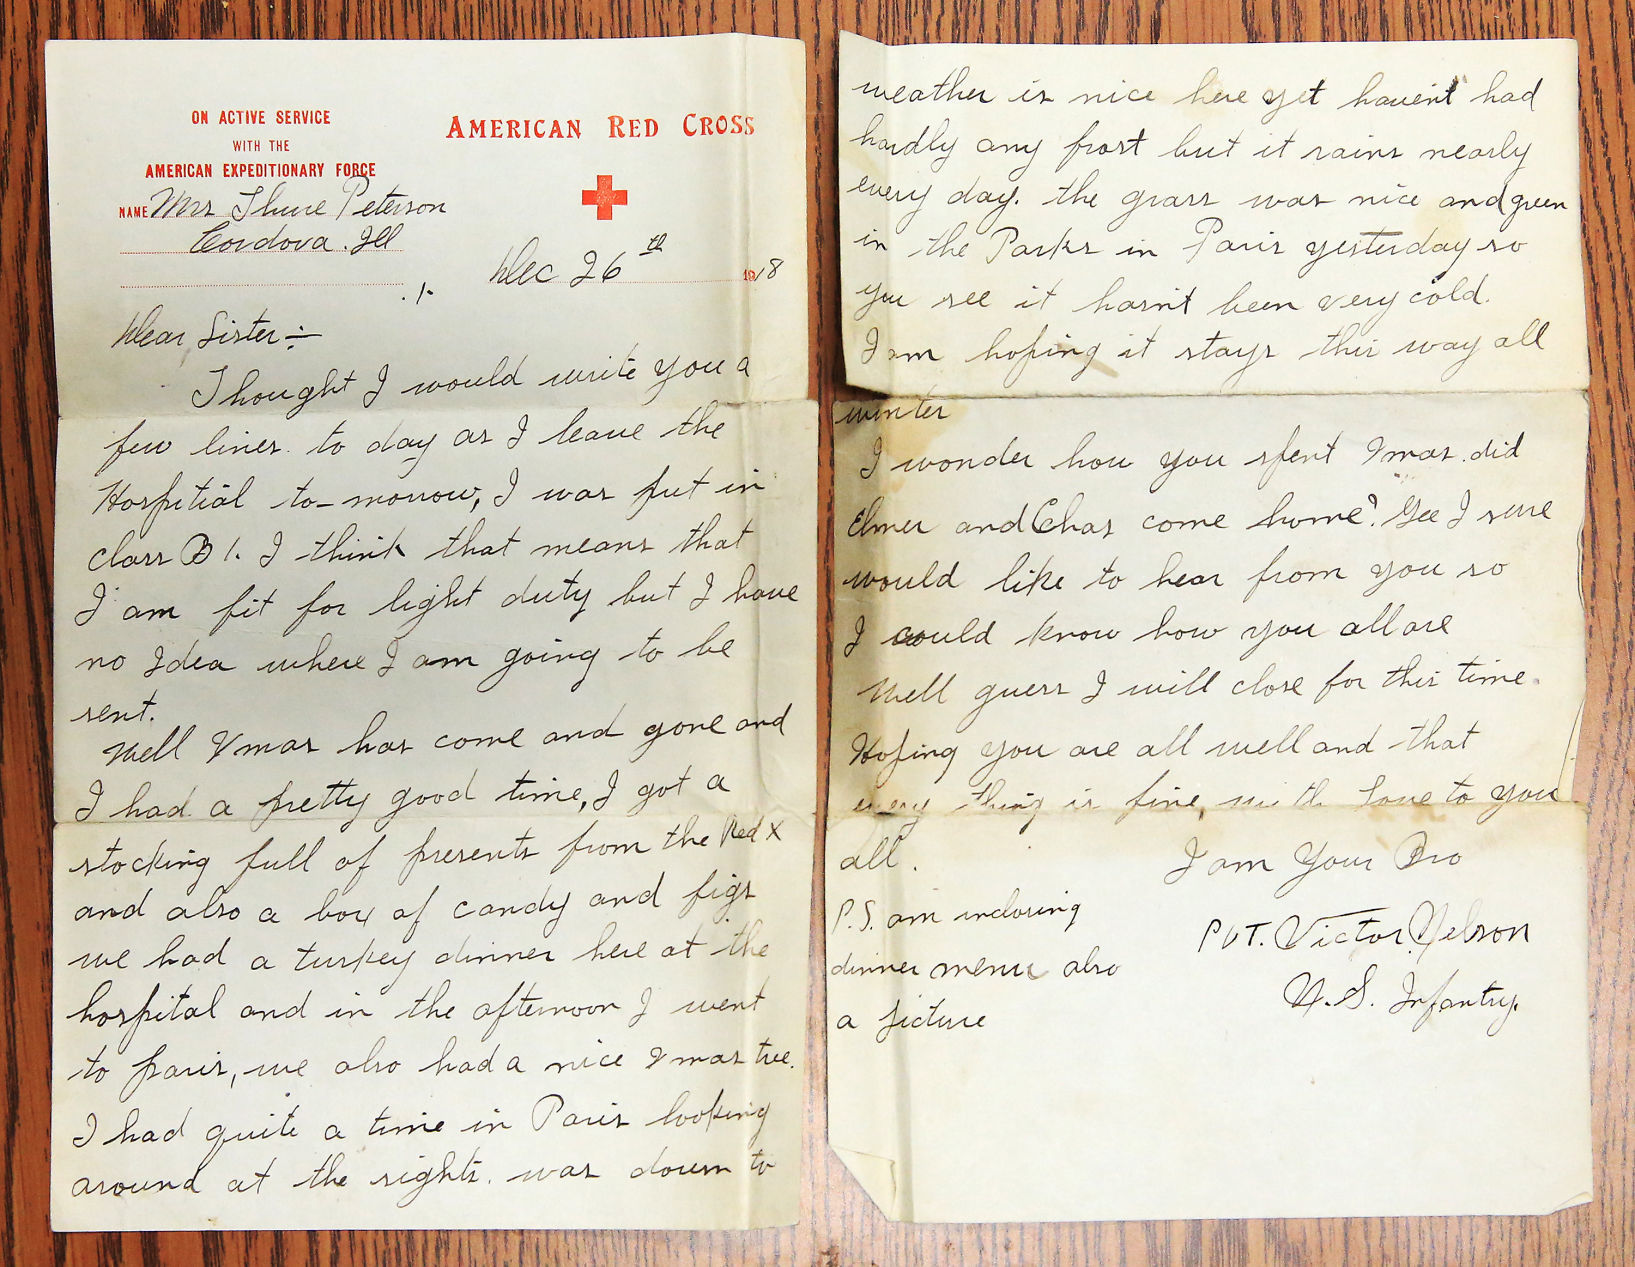 ON ACTIVE SERVICE
WITH THE
AMERICAN EXPEDITIONARY FORCE
AMERICAN RED CROSS
NAME Mrs Thure Peterson
Cordova. Ill
Dec 26th 1918
.1.
Dear Sister:-
Thought I would write you a
few lines to day as I leave the
Hospitial to-morrow, I was put in
class B 1. I think that means that
I am fit for light duty but I have
no Idea where I am going to be
sent.
Well Xmas has come and gone and
I had a pretty good time, I got a
stocking full of presents from the Red X
and also a box of candy and figs
we had a turkey dinner here at the
hospital and in the afternoon I went
to paris, we also had a nice Xmas tree.
I had quite a time in Paris looking
around at the sights. was down to
weather is nice here yet havent had
hardly any frost but it rains nearly
every day. the grass was nice and green
in the Parks in Paris yesterday so
you see it hasnt been very cold.
I am hoping it stays this way all
winter
I wonder how you spent Xmas. did
Elmer and Chas come home? Gee I sure
would like to hear from you so
I could know how you all are
Well guess I will close for this time.
Hoping you are all well and that
every thing is fine, with Love to you
all.
I am Your Bro
Pvt. Victor Nelson
U.S. Infantry.
P.S. am inclosing
dinner menu also
a picture